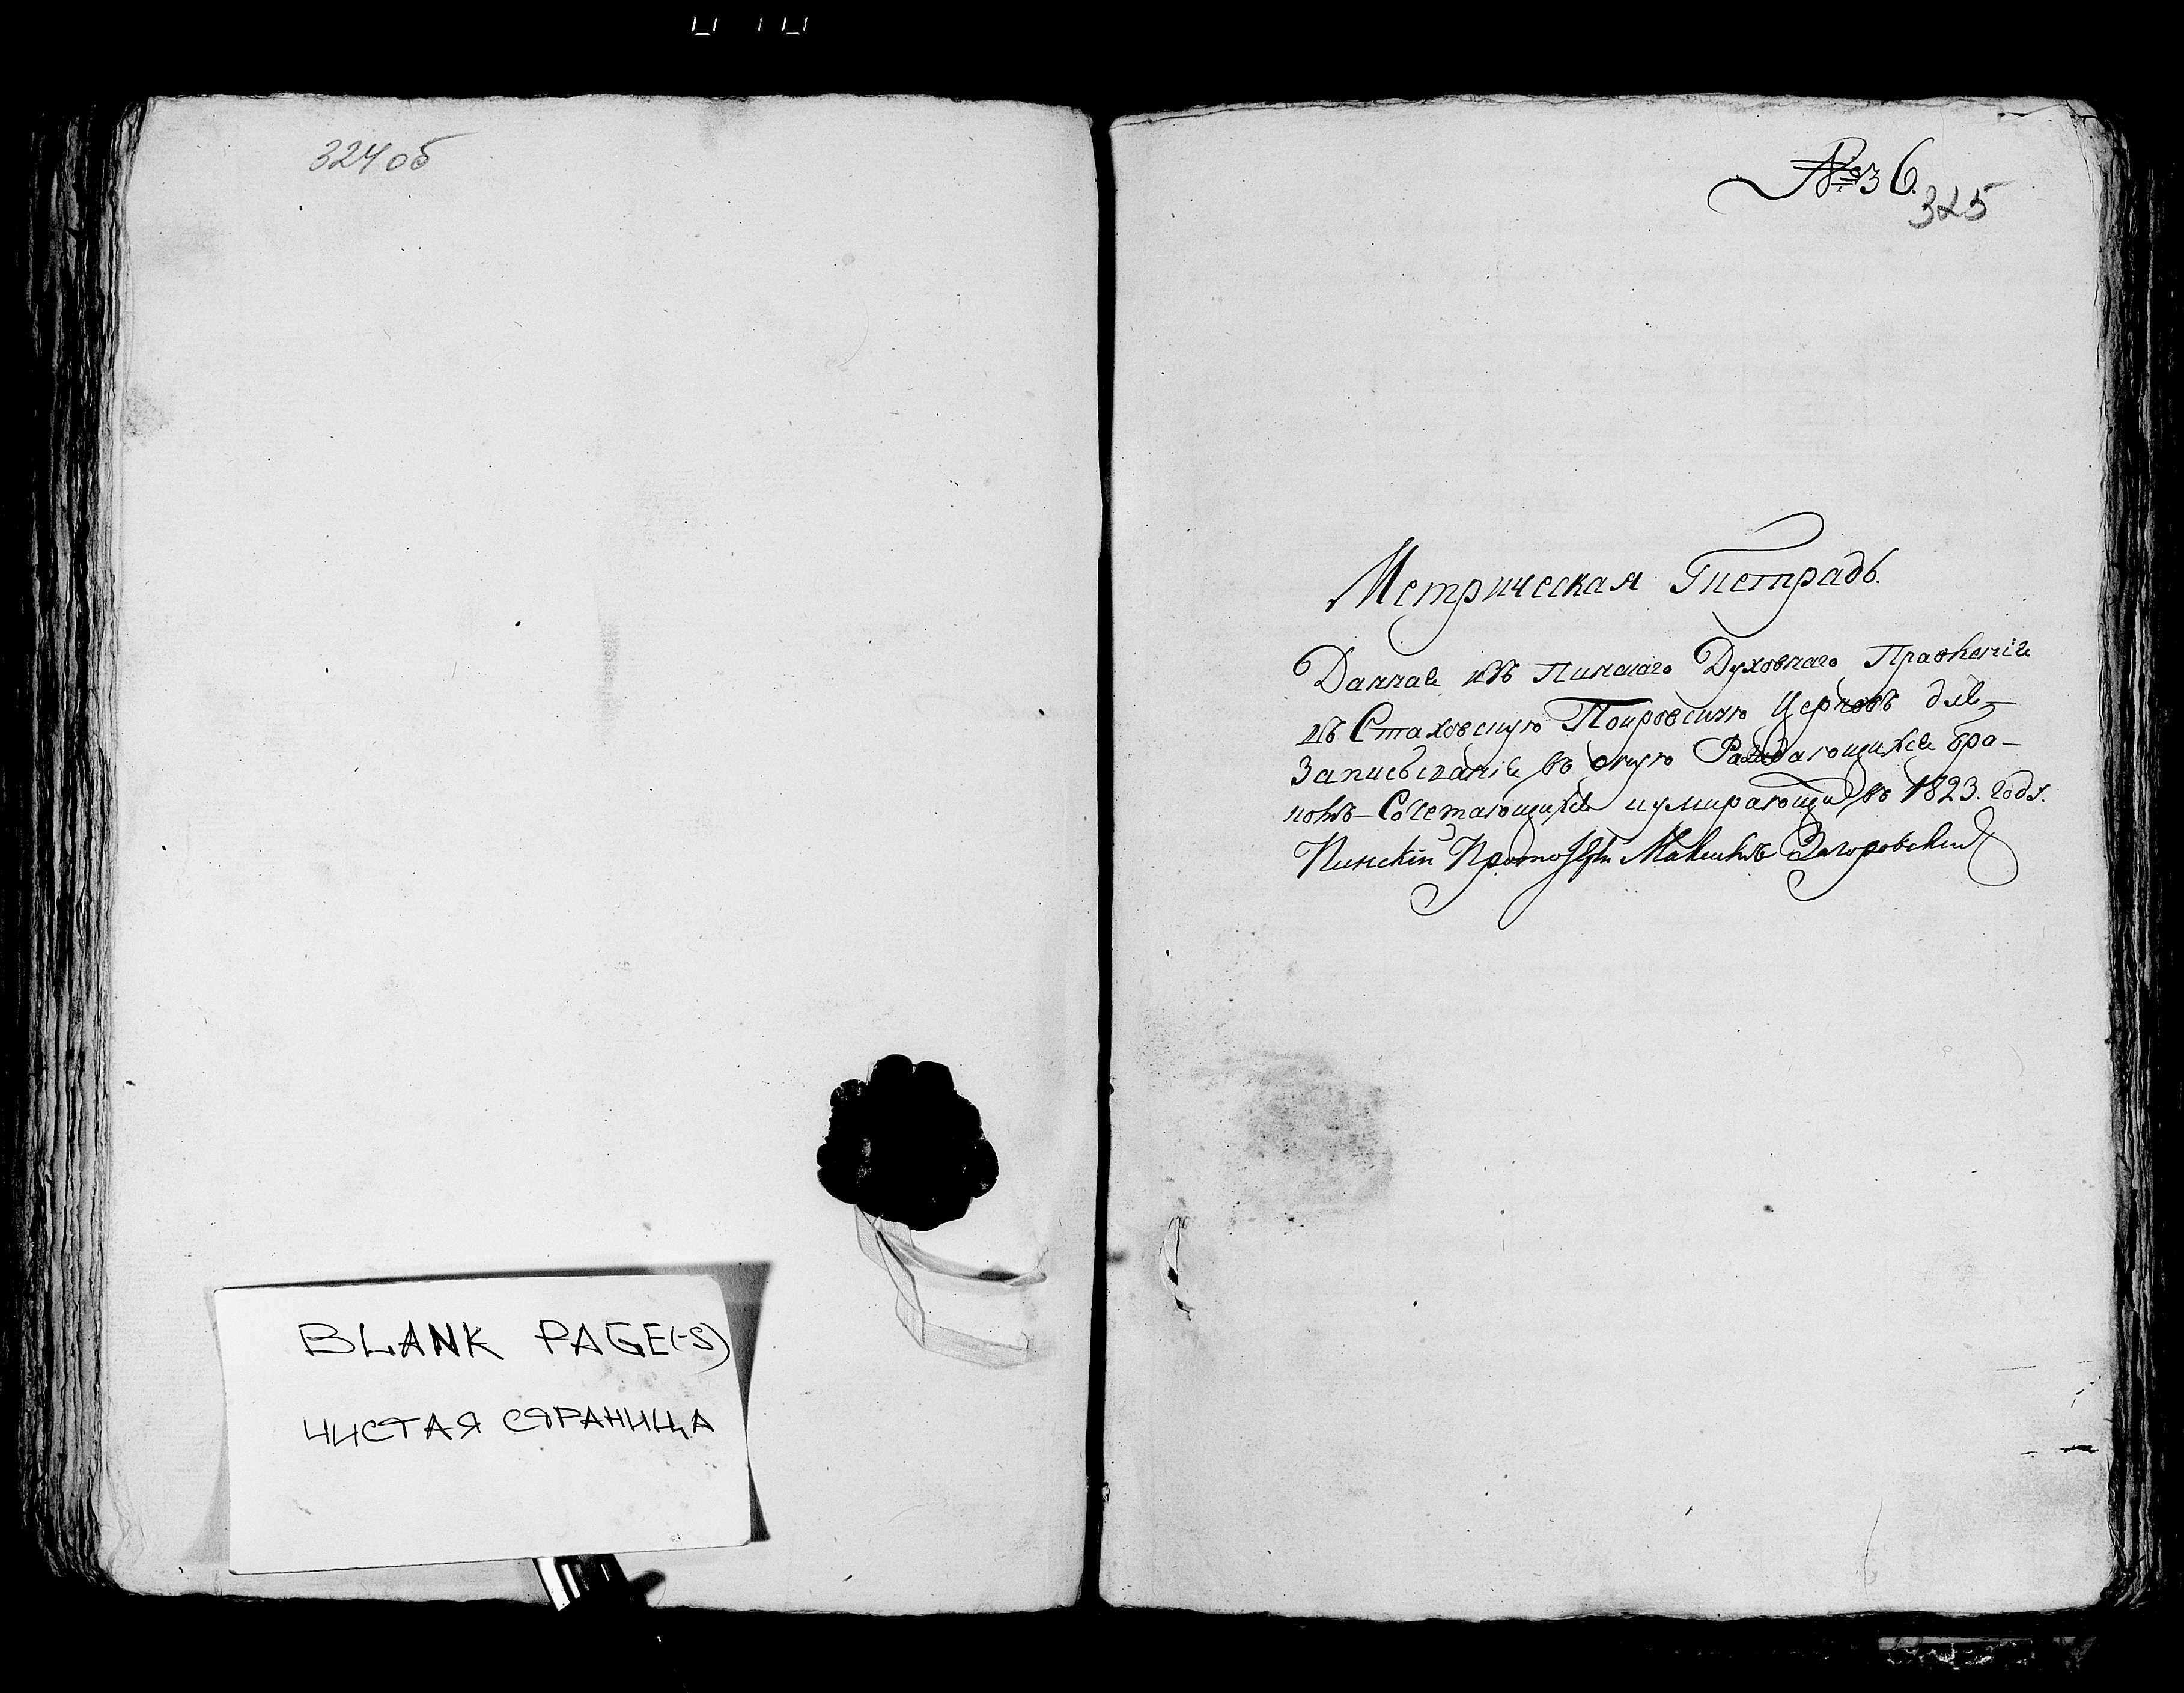 324 об
BLANK PAGE(-S)
ЧИСТАЯ СТРАНИЦА
№ 36.
325
Метрическая Тетрадь.
Данная изъ Пинскаго Духовнаго Правленія
въ Стаховскую Покровскую Церковь для
Записыванія въ оную Раждающихся бра-
комъ Сочетающихся и умирающи въ 1823. году.
Пинскій Протоіерей Максимъ Загоровский